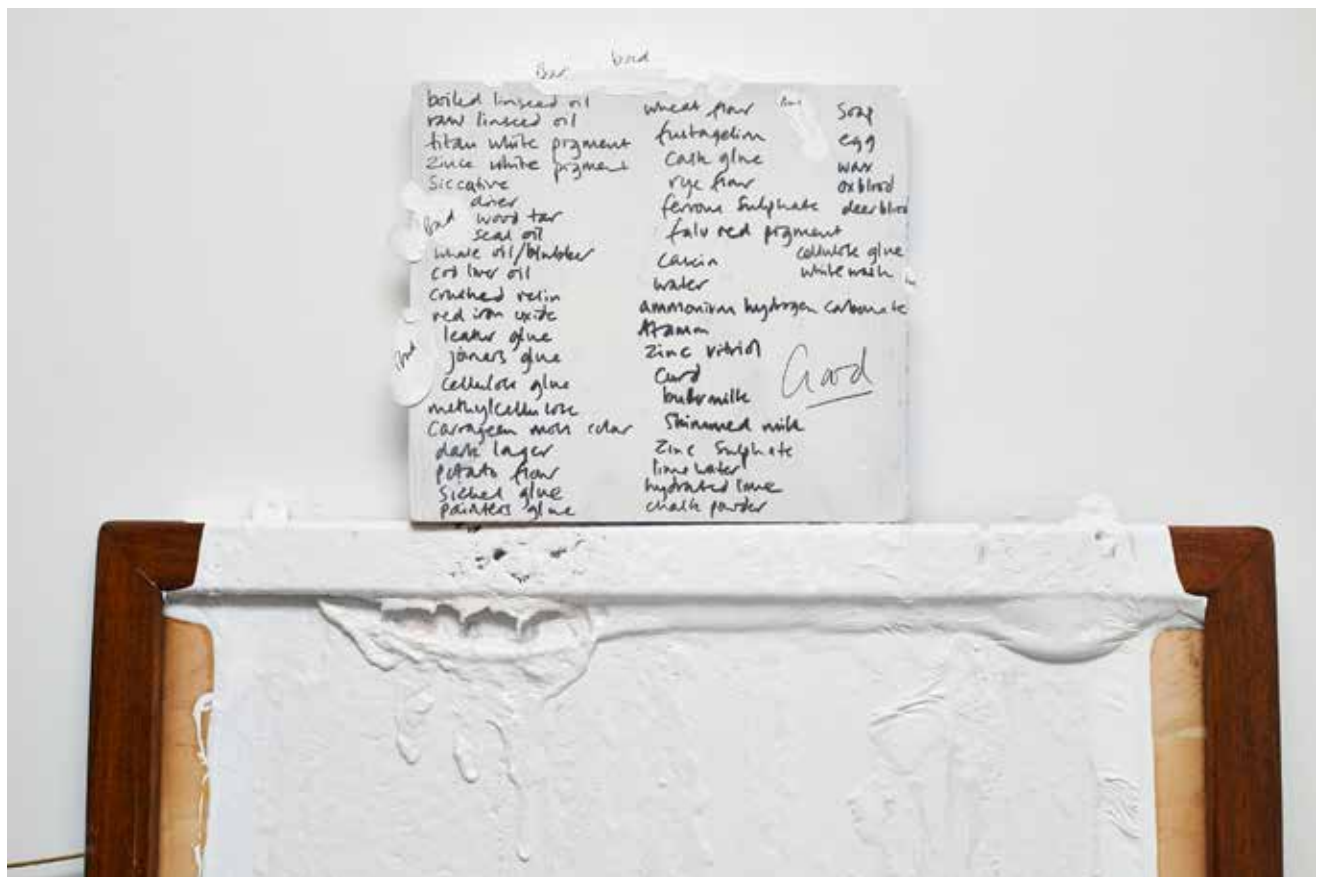 Bad
bad
boiled linseed oil
raw linseed oil
titan white pigment
zince white pigment
siccative
drier
Bad
wood tar
seal oil
whale oil/blubber
cod liver oil
crushed resin
red iron oxide
leather glue
joiners glue
Bad
cellulose glue
methylcellulose
carrageen moss color
dark lager
potato flour
Sichel glue
painters glue
wheat flour
cash glue
rye flour
ferrous sulphate
falu red pigment
casein
water
ammonium hydrogen carbonate
zinc vitriol
curd
buttermilk
skimmed milk
zinc sulphate
lime water
hydrated lime
chalk powder
Bad
soap
egg
wax
oxblood
deerblood
cellulose glue
whitewash
Good